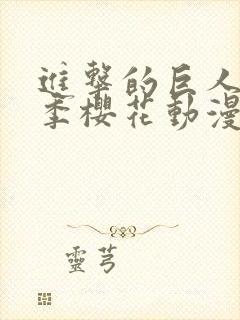 進擊的巨人
季櫻花動漫
靈芎